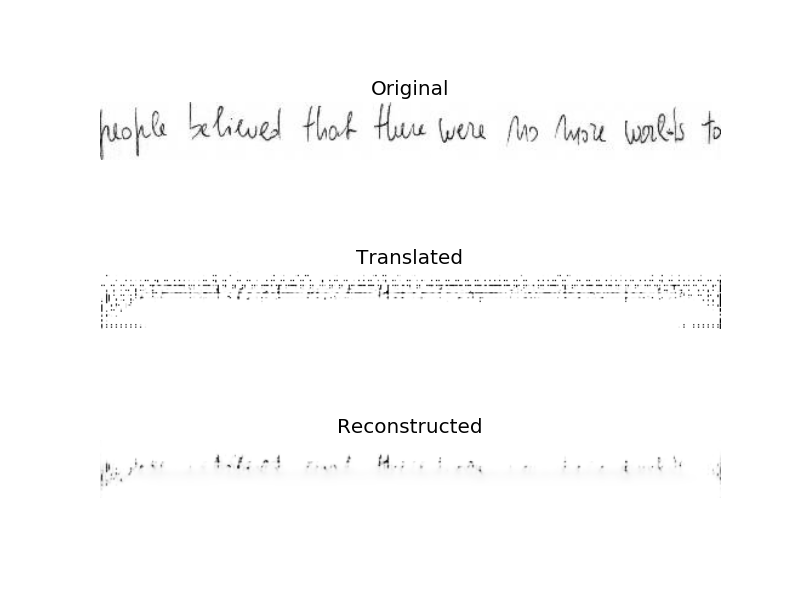 Original
people believed that there were no more worlds to
Translated
Reconstructed